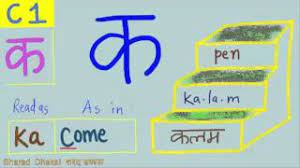 C1
क
क
pen
ka.la.m
कलम
Read as
As in
Ka
Come
Sharad Dhakal शरद ढकाल